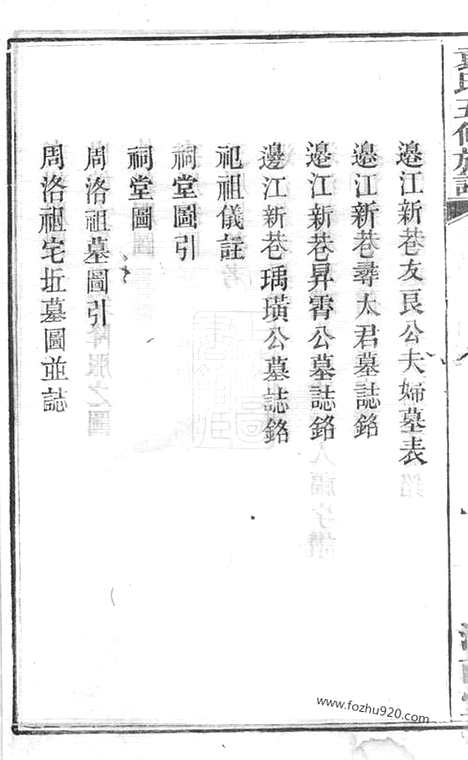 邉江新巷友良公夫婦墓表
邉江新巷尋太君墓誌銘
邉江新巷昇霄公墓誌銘
邉江新巷瑀璜公墓誌銘
祀祖儀註
祠堂圖引
祠堂圖
周洛祖墓圖引
周洛祖宅坵墓圖並誌
www.fozhu920.com